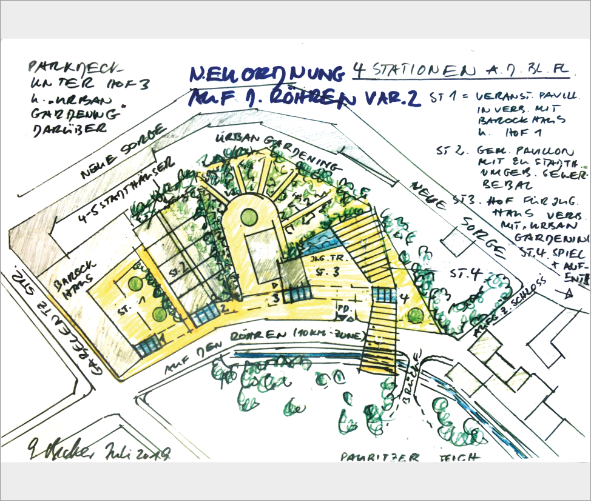 PARKDECK
UNTER HOF 3
U. „URBAN
GARDENING"
DARÜBER
NEUORDNUNG 4 STATIONEN A. D. BL. FL.
AUF D. RÖHREN VAR. 2
ST 1 = VERANST. PAVILL.
IN VERB. MIT
BAROCKHAUS
U. HOF 1
ST 2.
PAVILLON
MIT
ST 3. HOF FÜR JUG.
HAUS VERB.
MIT URBAN
GARDENING
ST. 4 SPIEL
+ AUF-
ENTH.
NEUE SORGE
URBAN GARDENING
4-5 STADTHÄUSER
NEUE SORGE
BAROCK
HAUS
ST. 1
ST. 2
JUG. TR.
ST. 3
ST. 4
1
2
3
4
PD
ZUM SCHLOSS
AUF DEN RÖHREN (10KMS-ZONE)
BRÜCKE
PAURITZER TEICH
Juli 2019